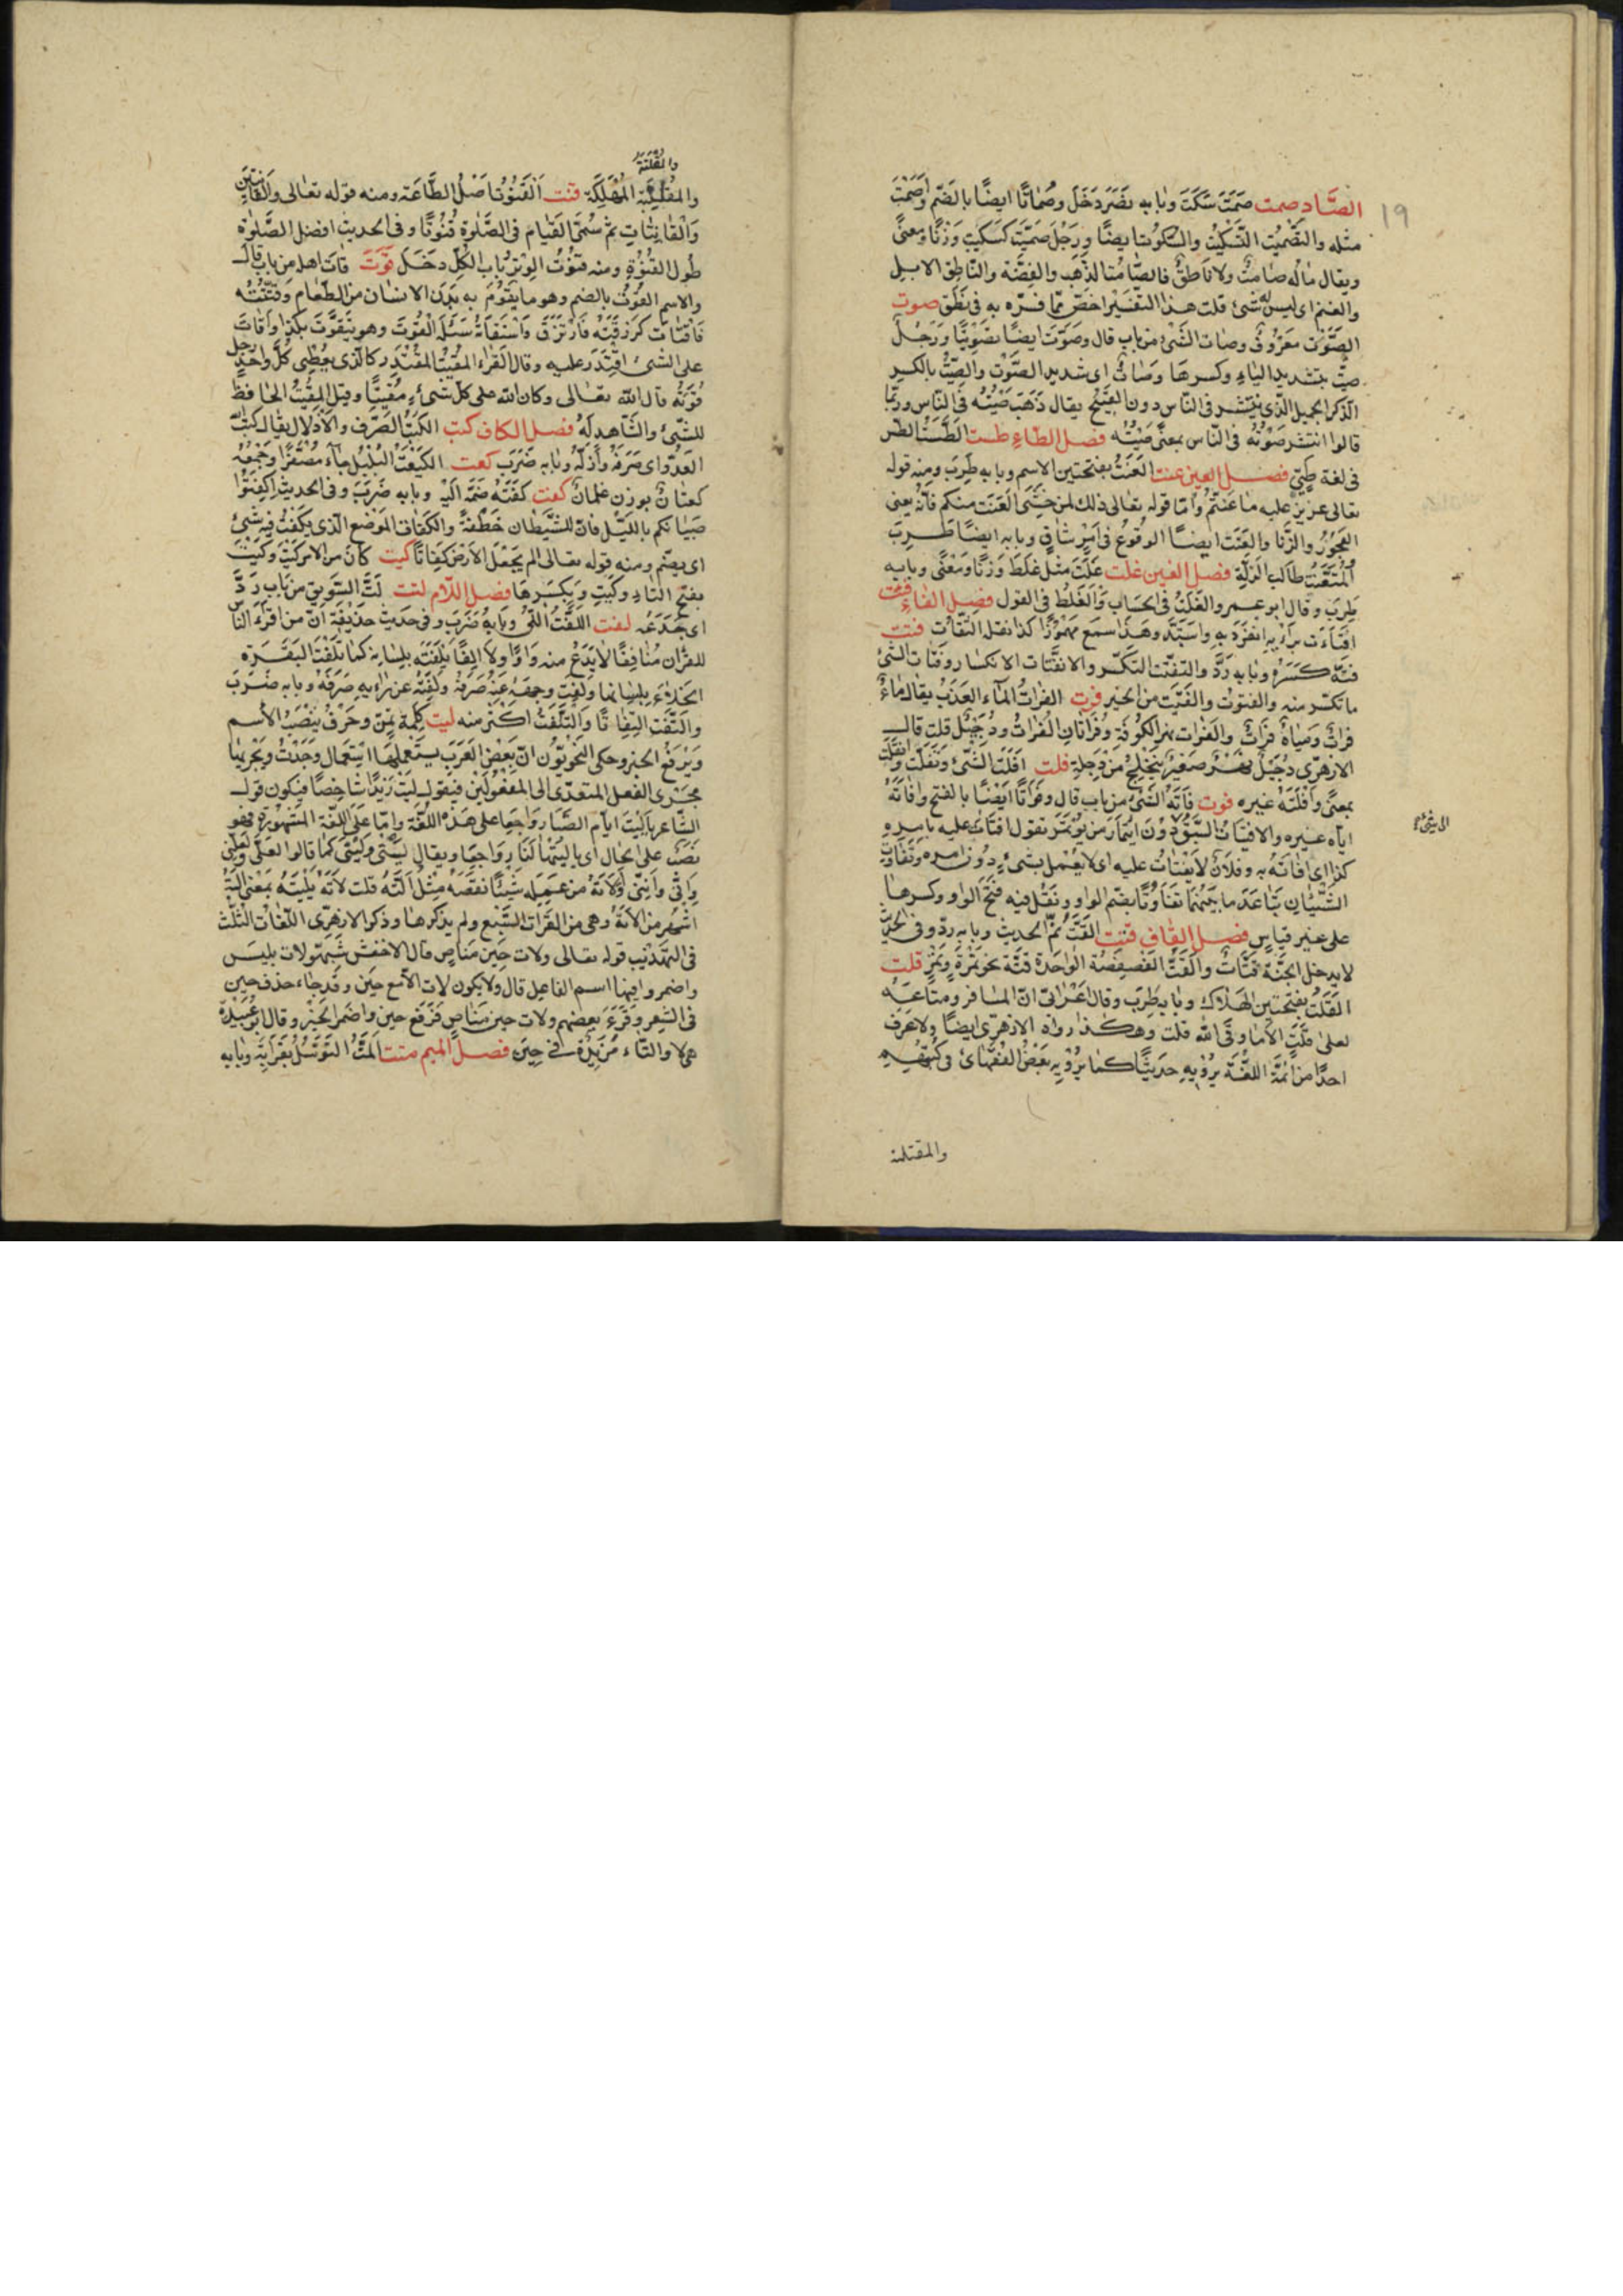 ١٩
الصَّاد صمت صَمَتَ سَكَتَ وبابه نَصَرَ دَخَلَ وصُمَاتًا ايضًا بالضّم واَصْمَتَ
مثله والتَصْمِيْت التَسْكِيْت والسكوت ايضًا ورَجُلٌ صِمِّيْت كَسِكِّيت وَزْنًا ومعنىً
ويقال مالُه صامتٌ ولا ناطِقٌ فالصّامت الذَهب والفِضَّة والنّاطق الابِل
والغنم اى ليس له شئ قلت هذا التفسير اخصّ ممّا فسّره به فى نَطَقَ صوت
الصَّوْت مَعْرُوفٌ وصَات الشَّئ من باب قال وصَوَّتَ ايضًا تصْوِيْتًا ورَجُلٌ
صيِّت بتشديد الياء وكسرها وصَاتٌ اى شديد الصَّوْت والصِّيْتُ بالكسر
الذكر الجميل الّذى ينتشر فى النّاس دون القبيح يقال ذَهَبَ صِيْتُه فى النّاس وربّما
قالوا انتشر صَوْتُه فى النّاس بمعنى صِيْتُه فصل الطّاء طست الطَّسْت الطسّ
فى لغة طَيِّئٍ فصل العين عنت العَنَتُ بفتحتين الاسم وبابه طَرِبَ ومنه قوله
تعالى عزيزٌ عليه ما عَنِتُّمْ وامّا قوله تعالى ذلك لمن خَشِىَ العَنَت منكم فانّه يعنى
الفجور والزّنا والعَنَت ايضًا الوقوع فى اَمْرٍ شاقٍّ وبابه ايضًا طَرِبَ
المُتَعَنِّت طالب الزَلَّةِ فصل الغين غلت غَلِتَ مثل غَلِطَ وَزْنًا ومَعْنًى وبابه
طَرِبَ وقال ابو عمرو الغَلَتُ فى الحساب والغَلَطُ فى القول فصل الفاء فئت
افتأَت برَأيِه انفرد به واستبدّ وهذا سمع مهموزًا كذا نقل الثقات فتت
فَتَّهُ كَسَرَهُ وبابه رَدَّ والتَفَتُّت التَكَسُّر والانفتات الانكسار وفتات الشئ
ما تكسّر منه والفتوت والفَتِيت من الخبز فرت الفراتُ الماء العَذْبُ يقال ماءٌ
فراتٌ ومياهٌ فراتٌ والفُرات نهر الكُوفَةِ وفُرَاتَان الفُراتُ ودُجَيْلٌ قلت قال
الازهرى دُجَيْل نهرٌ صَغيرٌ يَتَخَلَّجُ من دَجِلة فلت اَفْلَتَ الشّئ وتَفَلَّت وانفَلَتَ
بمعنًى وافلَتَه غيره فوت فَاتَهُ الشَّئ من باب قال وفَوَاتًا ايضًا بالفتح وافاتَهُ
ايّاه غيره والافتيات السَّبْق دون ائتمار من يؤتمر تقول افتات عليه بامر
كذا اى فاتَه به وفلانٌ لا يفتات عليه اى لا يُعْمَل بشئ دون امره وتفاوت
الشيئان تباعد ما بينهما تفاوتًا بضم الواو ونقل فيه فتح الواو وكسرها
على غير قياسٍ فصل القاف قتت القَتّ نَمّ الحديث وبابه ردّ وفى الحديث
لا يدخل الجنّة قتّاتٌ والقَتُّ الفِصْفِصَة الواحدة قتّة نحو تمْرَة وتَمْر قلت
القَلَتُ بفتحتين الهلاك وبابه طَرِبَ وقال اَعْرابىّ انّ المسافر ومتاعَه
لعلى قَلَتٍ الاما وقى الله قلت وهكذا رواه الازهرى ايضًا ولا اعرف
احدًا من ائمّة اللغة يرويه حديثًا كما يرويه بعض الفقهاء فى كتبهم
والمقتلة
والقَلْتَةُ
والمَقْلَتَةُ المَهْلَكَة قنت القُنُوْتُ اَصْلُ الطَّاعَة ومنه قوله تعالى والقَانِتِيْنَ
والقَانِتَاتِ ثمّ سُمِّىَ القيام فى الصَّلوة قُنُوتًا وفى الحديث افضل الصَّلوة
طُول القُنُوت ومنه قنوت الوِتْر باب الكلّ دخَلَ قَوَتَ قاتَ اهله من باب قال
والاسم القُوْتُ بالضم وهو ما يقوم به بَدَن الانسان من الطّعام وقُتُّه
فاقتات كرَزَقْتُه فارتزق واستقاتَه سَئَلَه القوت وهو يتَقَوَّت بكذا واَقاتَ
على الشئ اقتدر عليه وقال الفرّاء المقيت المُقْتَدِر كالّذى يعطى كلّ واحدٍ رجل
قُوتَه قال الله تعالى وكان الله على كلّ شىءٍ مُقِيتًا وقيل المقيت الحافظ
للشَّئ والشّاهد له فصل الكاف كبت الكَبْت الصَّرْف والاذلال يقال كبت
العدوّ اى صَرَفَهُ واَذَلَّهُ وبابه ضَرَبَ كعت الكُعَيْت البُلْبُل جاء مُصَغَّرًا وجَمْعُه
كعتانٌ بوزن غِلمانٌ كفت كَفَتَهُ ضَمَّهُ اليه وبابه ضَرَبَ وفى الحديث اكفِتُوا
صبيانكم بالليل فانّ للشَّيْطان خَطْفَةً والكفات المَوْضع الّذى يكفت فيه شئ
اى يضمّ ومنه قوله تعالى الم نجعل الارض كِفاتًا كيت كانَ من الامر كَيْتَ وكَيْتَ
بفتح التاء وكيتِ وبكسرها فصل اللّام لتت لَتَّ السَّوِيق من باب رَدَّ
اى جَدَحَه لفت اللفْت اللىّ وبابه ضَرَبَ وفى حديث حذيفة انّ من اقرءَ النّاس
للقرآن مُنافِقًا لا يَدَعُ منه وَاوًا ولا الِفًا يلفته بلسانه كما تَلْفِتُ البَقَرَة
الخلاء بلسانها ولَفَت وجهَه عنه صرفه ولَفَتَه عن رأيه صَرَفَهُ وبابه ضَرَبَ
والتَفَت التفاتًا والتَّلَفُّت اكثر منه ليت كلمة تمنّ وحرفٌ ينصب الاسم
ويرفع الخبر وحكى النحويّون انّ بعض العرب يستعملها استعمال وجدت ويجريها
مجرى الفعل المتعدّى الى المفعولين فيقول ليت زيدًا شاخصًا فيكون قول
الشّاعر يا ليت ايّام الصّبا رواجعا على هذه اللغة وامّا على اللغة المشهورة فهو
نصب على الحال اى يا ليتها لنا رواجعا ويقال ليتى وليتنى كما قالوا لعلّى ولعلنى
وانّى واننى ولاته من عمله شيئًا نقصه مثل التَه قلت لاته يليته بمعنى
اشهر من الاته وهى من القراآت السّبع ولم يذكرها وذكر الازهرى اللغات الثلث
فى التهذيب قوله تعالى ولات حين مناص قال الاخفش شبّهوا لات بليس
واضمروا فيها اسم الفاعل قال ولا يكون لات الا مع حين وقد جاء حذف حين
فى الشِعر وقَرَءَ بعضهم ولات حين مَناص فرَفع حين واضمر الخبر وقال ابو عبيدة
هى لا والتاء مزيدة فى حين فصل الميم متت المَتُّ التوسّل بقرابة وبابه